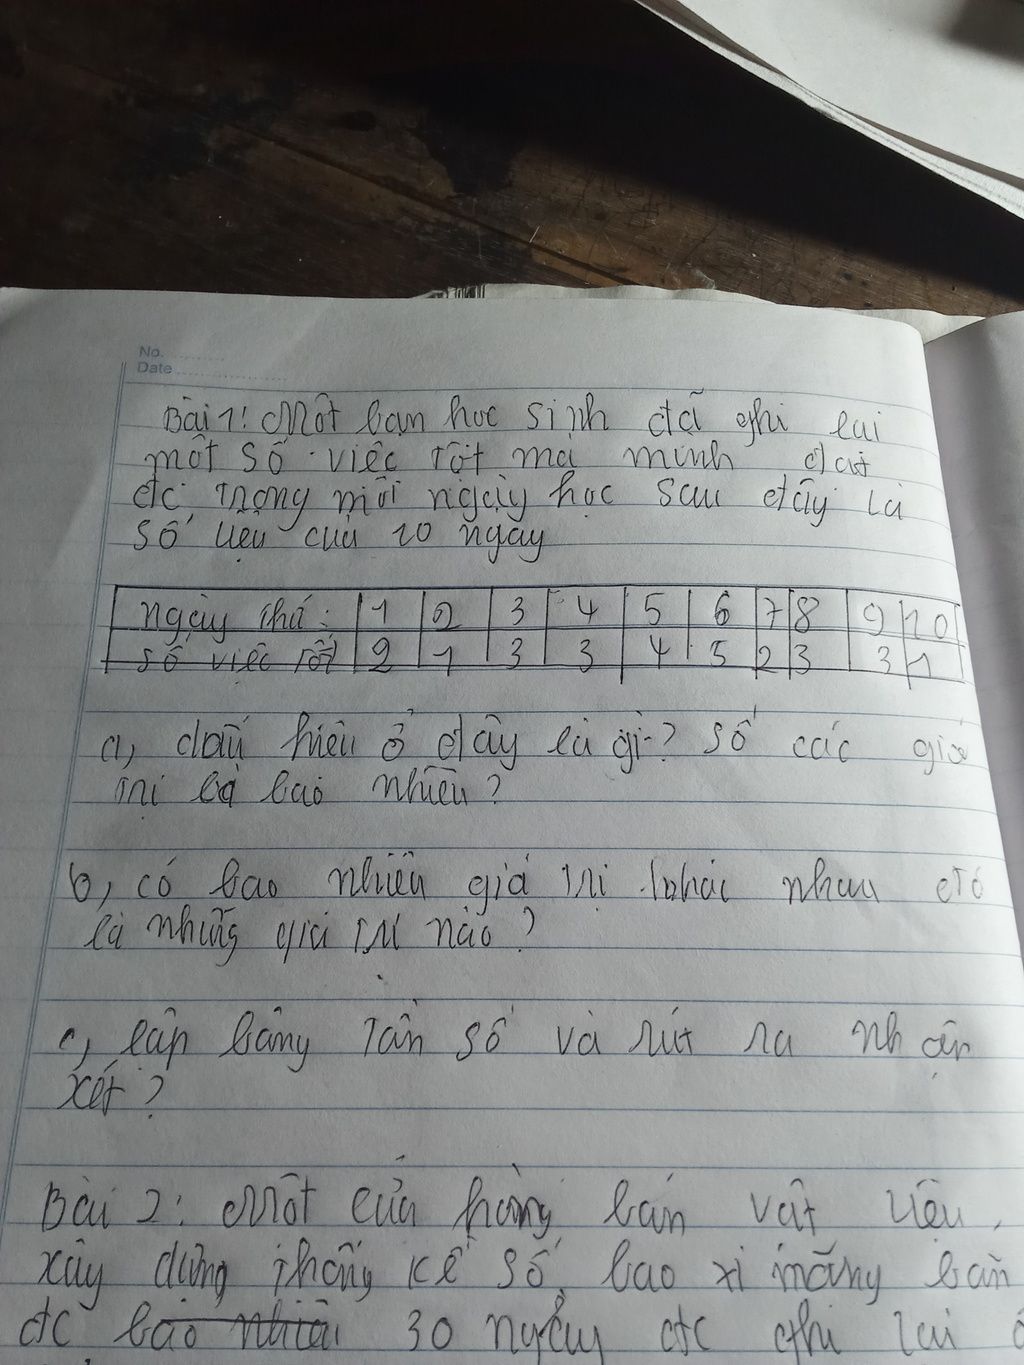 No.
Date
Bài 1: Một bạn học sinh đã ghi lại
một số việc tốt mà mình đạt
đc trong mỗi ngày học sau đây là
số liệu của 10 ngày
ngày thứ: 1 2 3 4 5 6 7 8 9 10
số việc tốt 2 1 3 3 4 5 2 3 3 1
a, dấu hiệu ở đây là gì? số các giá
trị là bao nhiêu?
b, có bao nhiêu giá trị khác nhau đó
là những giá trị nào?
c, lập bảng tần số và rút ra nhận
xét?
Bài 2: Một cửa hàng bán vật liệu
xây dựng thống kê số bao xi măng bán
đc bao nhiêu 30 ngày đc ghi lại ở